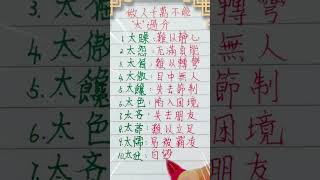 做人千萬不能
"太"過分
1.太躁:難以靜心
2.太怨:充滿負能
3.太:難以轉彎
4.太傲:目中無人
5.太饞:失去節制
6.太色:陷入困境
7.太吝:失去朋友
8.太:難以立足
9.太懦:易被霸
10.太狂:自毀